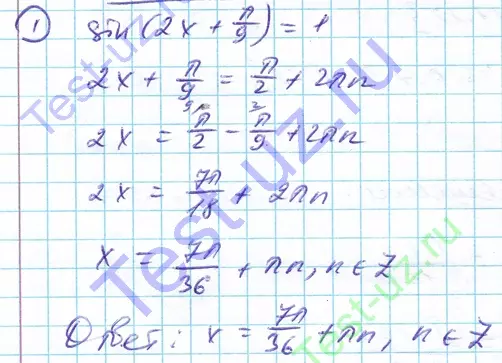 ① sin(2x + π/9) = 1
2x + π/9 = π/2 + 2πn
2x = ⁹⁾π/2 - ²⁾π/9 + 2πn
2x = 7π/18 + 2πn
x = 7π/36 + πn, n ∈ Z
Ответ: x = 7π/36 + πn, n ∈ Z
Test-uz.ru
Test-uz.ru
Test-uz.ru